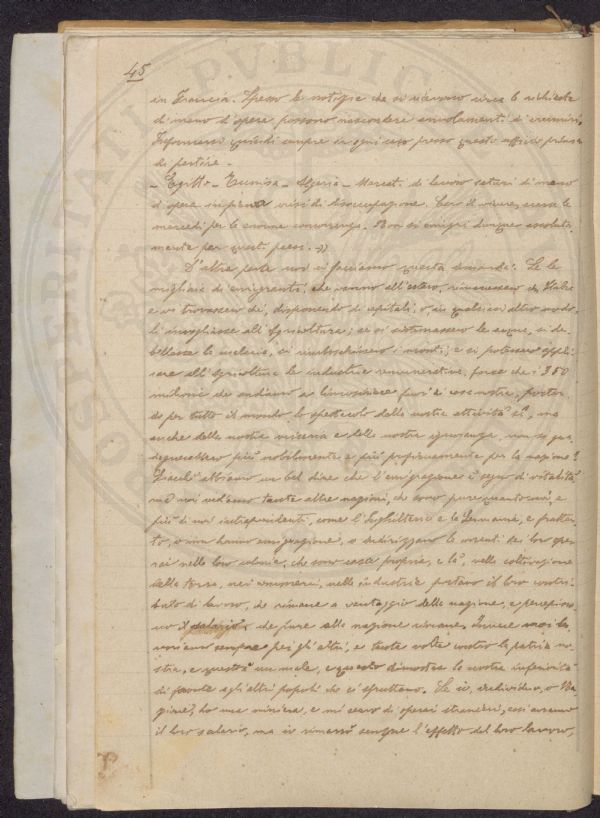 45
in Francia. Spesso le notizie che si ricevono circa le richieste
di mano d'opera possono nascondere arrolamenti di crumiri.
Informarsi quindi sempre in ogni caso presso questo ufficio prima
di partire -
- Egitto - Tunisia - Algeria - Mercati di lavoro saturi di mano
d'opera in piena crisi di disoccupazione. Caro il vivere, scarse le
mercedi per la enorme concorrenza. Non si emigri dunque assoluta-
mente per questi paesi. »
D'altra parte noi ci facciamo questa domanda: Se le
migliaia di emigranti, che vanno all'estero, rimanessero in Italia
e vi trovassero da, disponendo di capitali, o, in qualsiasi altro modo,
all'agricoltura; se si sistemassero le acque, si de-
bellasse la malaria, si rimboschissero i monti; e si potessero appli-
care all'agricoltura le industrie remunerative, forse che i 350
milioni che andiamo a fuori di casa nostra, portan-
do per tutto il mondo lo spettacolo della nostra attività sì, ma
anche della nostra miseria e della nostra ignoranza, non si gua-
dagnerebbero più nobilmente e più proficuamente per la nazione?
abbiamo un bel dire che l'emigrazione è segno di vitalità
ma noi vediamo tante altre nazioni, che sono pure quanto noi, e
più di noi intraprendenti, come l'Inghilterra e la Germania, e frattan-
to, o non hanno emigrazione, o indirizzano le correnti dei loro ope-
rai nelle loro colonie, che sono casa propria, e là, nella coltivazione
della terra, nei commerci, nelle industrie portano il loro contri-
buto di lavoro, che rimane a vantaggio della nazione, e percepisco-
no il salario, che pure alla nazione rimane. Invece noi la-
voriamo sempre per gli altri, e tante volte contro la patria no-
stra, e questo è un male, e questo dimostra la nostra inferiorità
di fronte agli altri popoli che ci sfruttano. Se io, individuo, o Na-
zione, ho una miniera, e mi servo di operai stranieri, essi avranno
il loro salario, ma io rimarrò sempre l'effetto del loro lavoro,